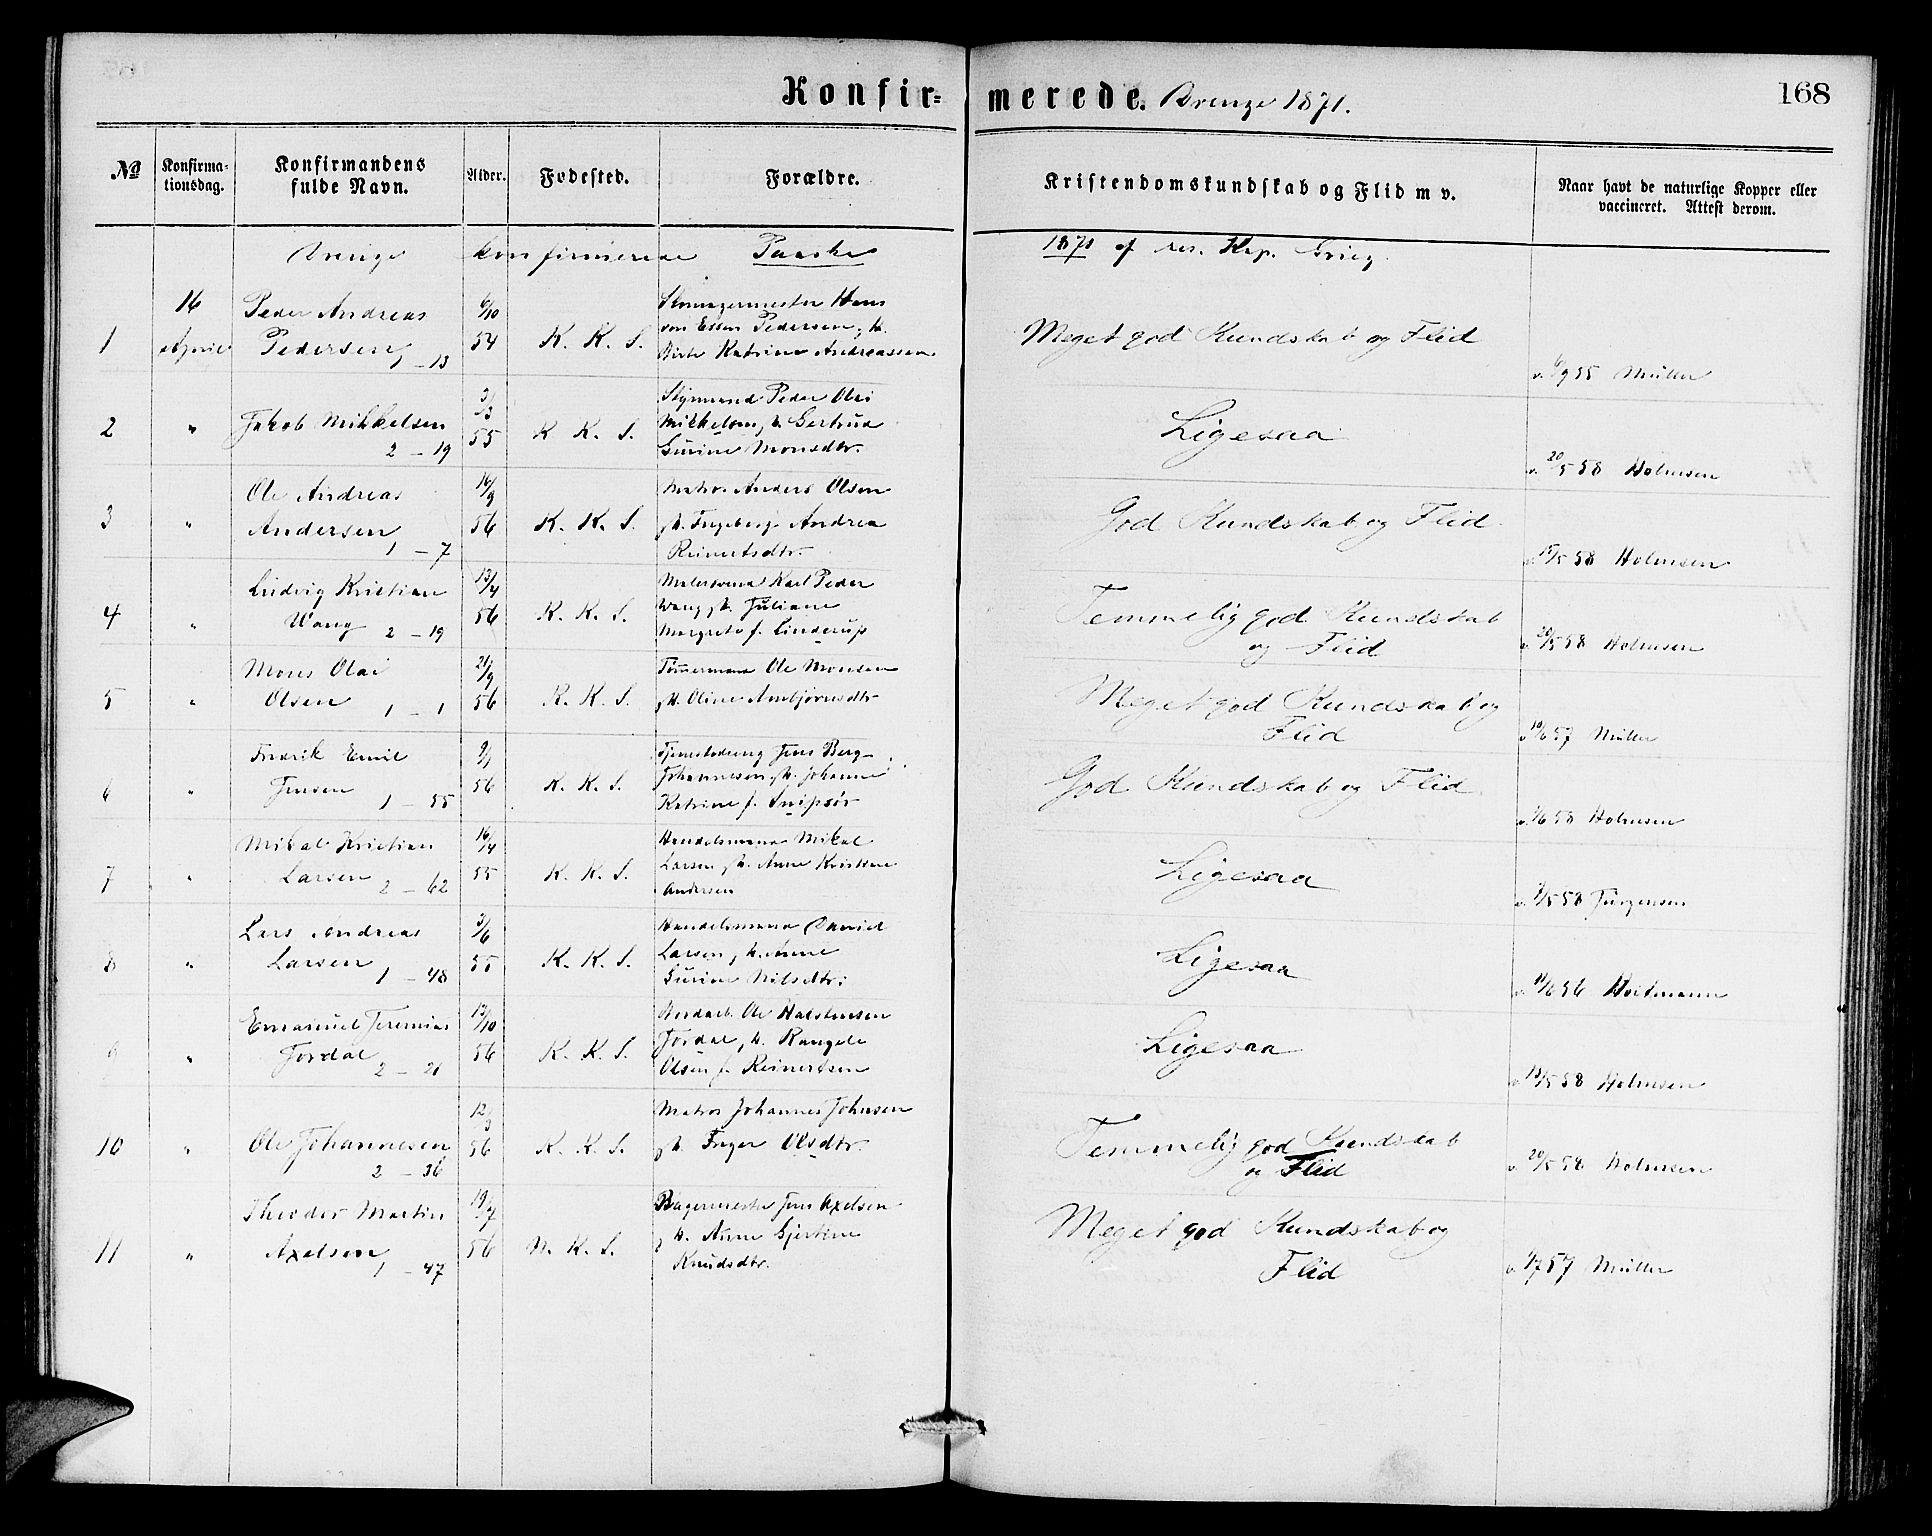 Konfir= merede. Drenge 1871.
168
No
Konfirma-
tionsdag.
Konfirmandens
fulde Navn.
Alder.
Fødested.
Forældre.
Kristendomskundskab og Flid m v.
Naar havt de naturlige Kopper eller
vaccineret. Attest derom.
Drenge konfirmerede Paaske 1871 af res. Kap. Grieg.
1
16
April
Peder Andreas
Pedersen 1 - 13
6/10
54
K. K. S.
Skomagermester Hans
von Essen Pedersen, H.
Birte Katrine Andreassen
Meget god Kundskab og Flid
v. 6/9 55 Müller
2
"
Jakob Mikkelsen
2 - 19
3/3
55
K. K. S.
Styrmand Peder Olai
Mikkelsen, H. Gertrud
Gurine Monsdtr.
Ligesaa
v. 20/5 58 Holmsen
3
"
Ole Andreas
Andersen 1 - 7
16/9
56
K. K. S.
Matros Anders Olsen
H. Ingeborg Andrea
Reinertsdtr.
God Kundskab og Flid.
v. 15/5 58 Holmsen
4
"
Ludvig Kristian
Wang 2 - 19
13/4
56
K. K. S.
Malersvend Karl Peder
Wang, H. Juliane
Margrete f. Linderup
Temmelig god Kundskab
og Flid
v. 20/5 58 Holmsen
5
"
Mons Olai
Olsen 1 - 1
21/9
56
K. K. S.
Tømmermand Ole Monsen
H. Oline Arnbjørnsdtr.
Meget god Kundskab og
Flid
v. 10/6 57 Müller
6
"
Fredrik Emil
Jensen 1 - 55
9/1
56
K. K. S.
Jens Berg
Johannesen, H. Johanne
Katrine f. Snipsør
God Kundskab og Flid.
v. 1/6 58 Holmsen
7
"
Mikal Kristian
Larsen 2 - 62
16/4
55
K. K. S.
Handelsmand Mikal
Larsen, H. Anne Kristine
Andersen
Ligesaa
v. 1/5 58 Jürgensen
8
"
Lars Andreas
Larsen 1 - 48
3/6
55
K. K. S.
Handelsmand Daniel
Larsen, H. Anne
Gurine Nilsdtr.
Ligesaa
v. 11/6 56 Heitmann
9
"
Emanuel Jeremias
Jordal 2 - 21
13/10
56
K. K. S.
Ole Halstensen
Jordal, H. Rangele
Olsen f. Reinertsen
Ligesaa
v. 13/5 58 Holmsen
10
"
Ole Johannesen
2 - 36
12/3
56
K. K. S.
Matros Johannes Johnsen
H. Inger Olsdtr.
Temmelig god Kundskab
og Flid
v. 20/5 58 Holmsen
11
"
Theodor Martin
Axelsen 1 - 47
19/7
56
N. K. S.
Bagermester Jens Axelsen
H. Anne Gjertine
Knudsdtr.
Meget god Kundskab og
Flid
v. 1/7 57 Müller